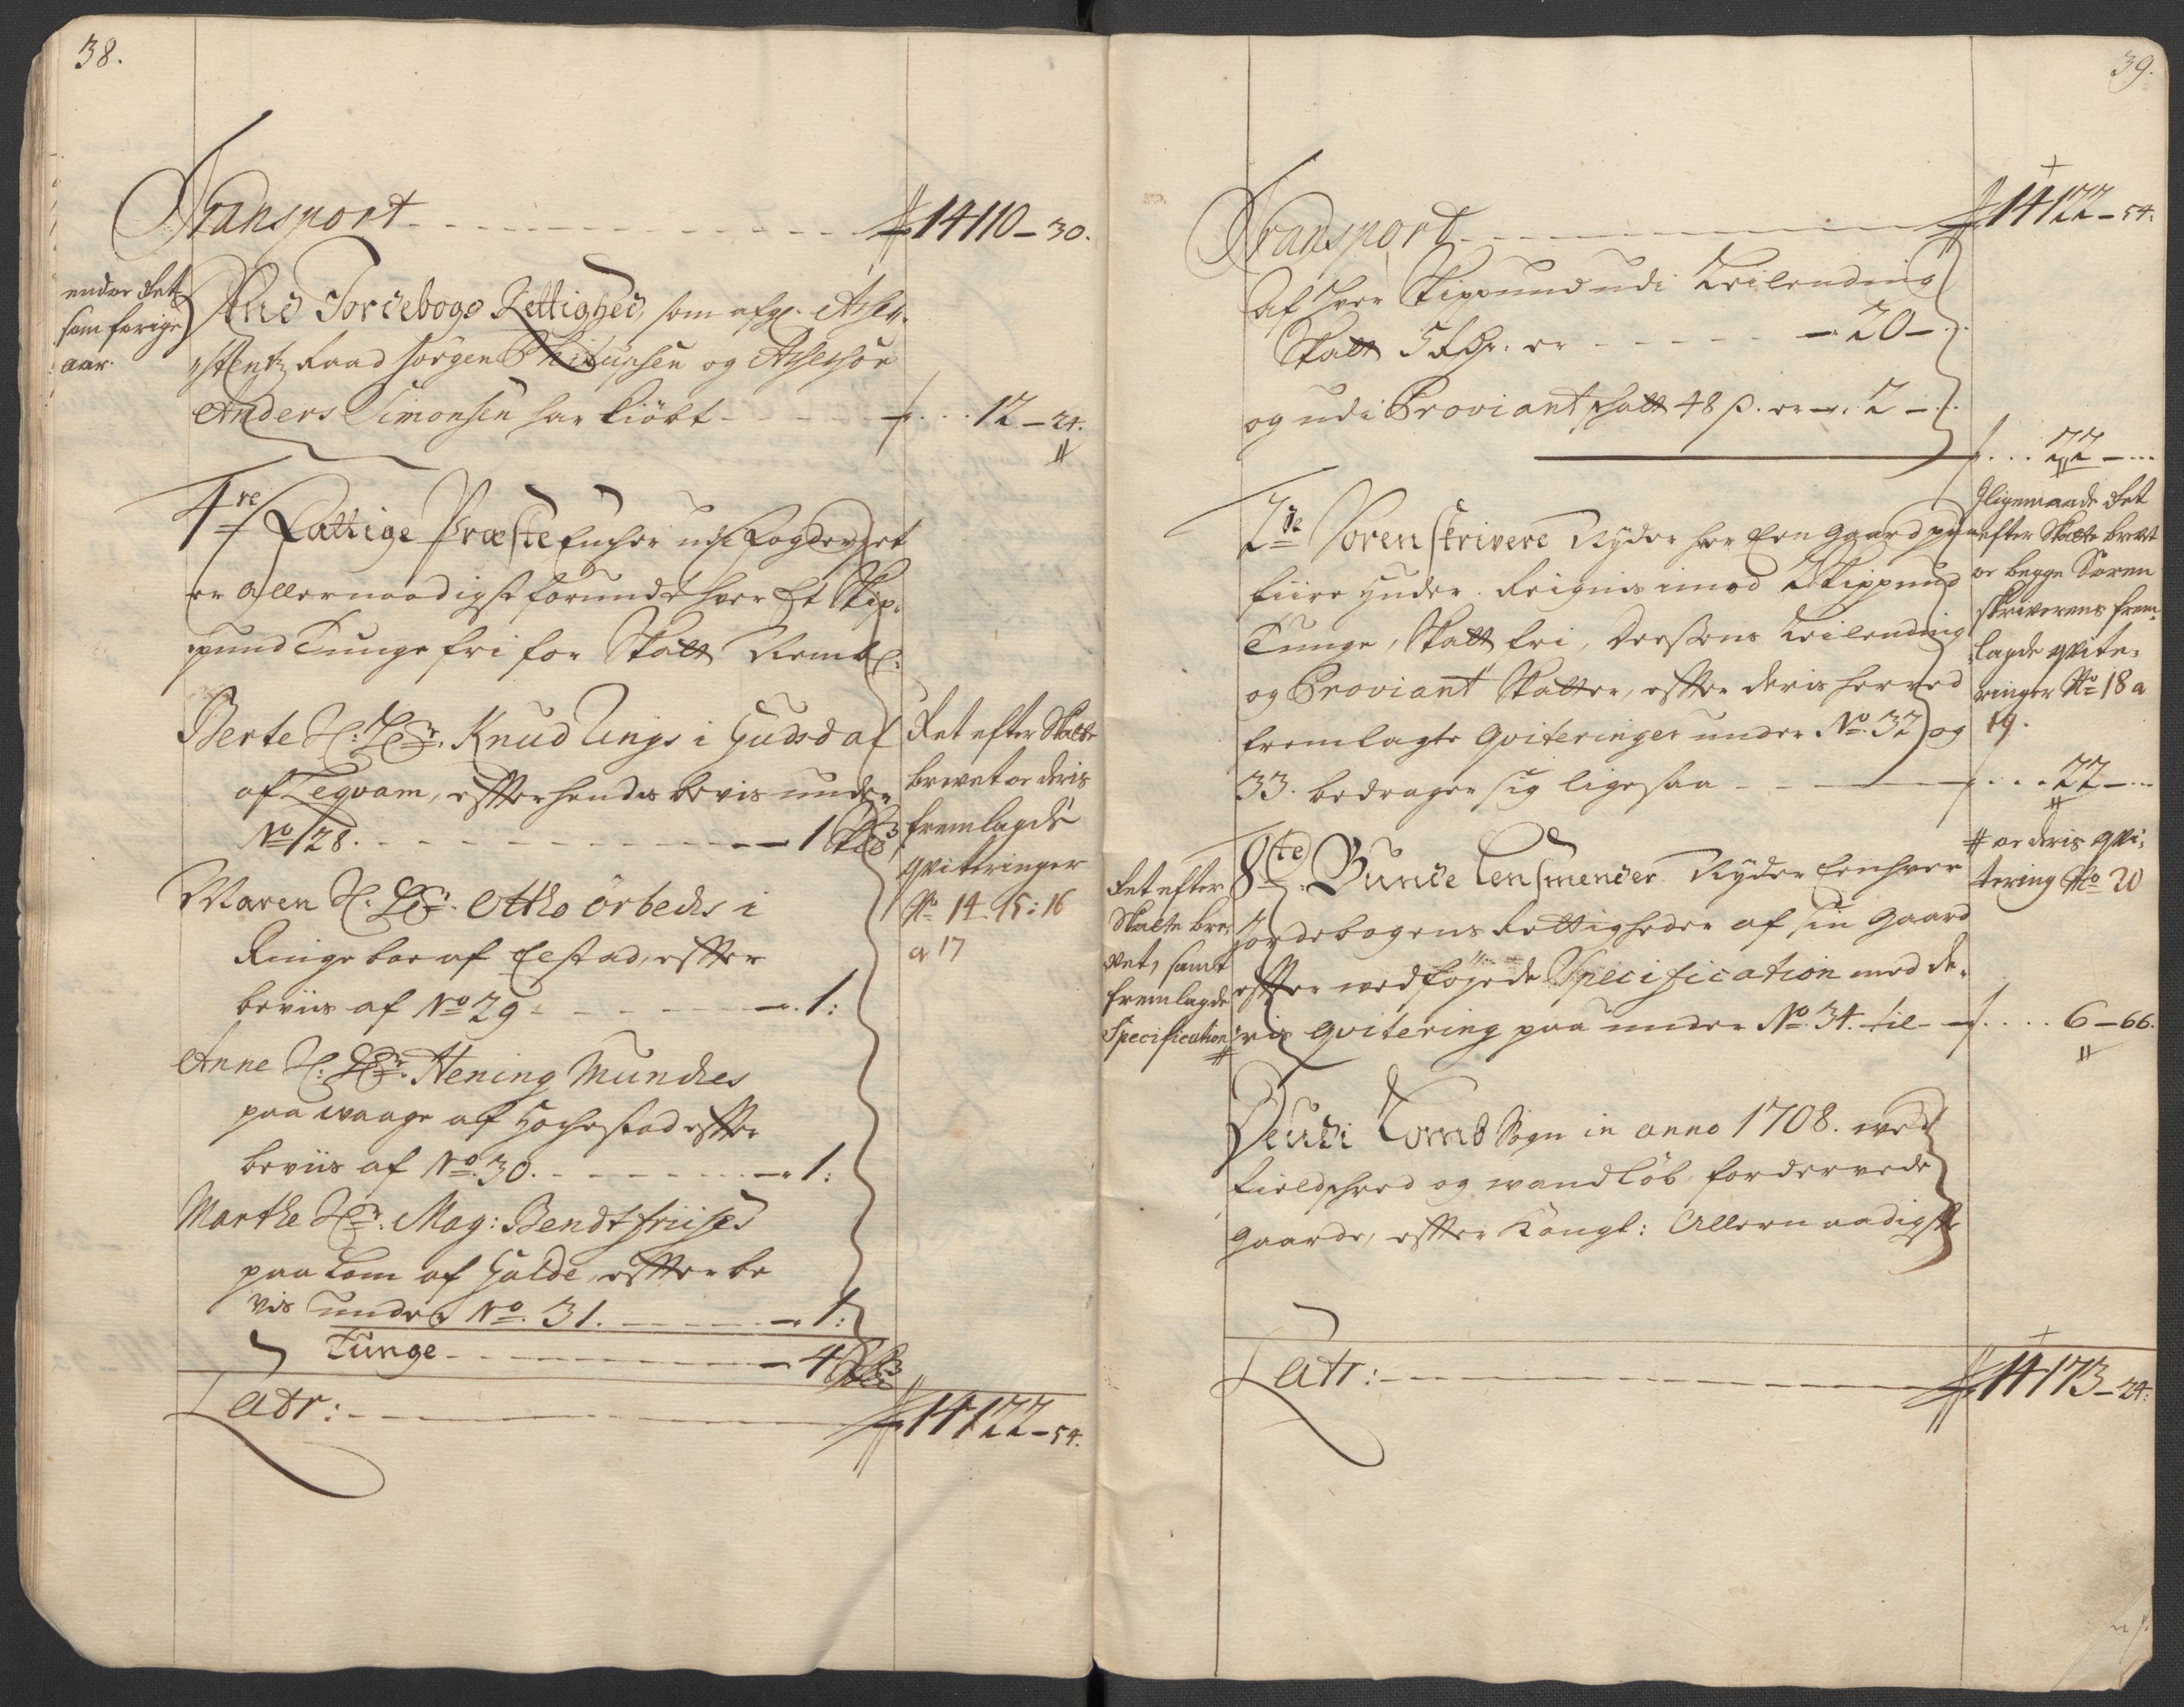 38.
Transport - - - - 14110 - 30.
ender det
som forige
aar.
And Jordebogs Rettighed, som afg. Asse-
Raad Jörgen Philupsen og Assessör
Anders Simonsen har kiöbt - - - 12 - 24.
4re Fattige Præste Encher udi Fogderiet
er allernaadigst forundt hver Et Skip-
pund Tunge fri for Skatt Neml:
Berte Sl: Hr. Knud Ungs i Gudsdal
af Tegvam, efter hendes bevis under
No 28. - - - 1 Sk℔
Maren Sl. Hr. Otto Örbechs i
Ringeboe af Elstad, efter
beviis af No 29 - - - 1:
Anne Sl: Hr. Hening Munches
paa Waage af Hochestad efter
beviis af No. 30. - - - 1:
Marthe Sl. Mag: Bendt Friises
paa Lom af Galde, efter be
vis under No. 31. - - - 1:
Tunge - - - 4 Sk℔
Det efter Skatte
brevet oc deris
fremlagde
qvitteringer
No 14. 15: 16
a 17
Latr: - - - 14122 - 54.
39.
Transport - - - 14122 - 54.
Af hver Skippund udi Leilending
Skatt 5 Rdr. er - - - 20 -
og udi Proviant skatt 48 s. er - 2 -
22 -
2de Sorenskrivere Nyder hver Een Gaard paa
fiire huder. Reignis imod 2 Skippund
Tunge, Skatt fri, Dessens Leilending
og Proviant Skatter, efter deris herved
fremlagte Qviteringer under No. 32 og
33. bedrager sig ligesaa - - - 22 -
Ligemaade det
efter Skatte brevet
oc begge Soren
skriverens frem
lagde qvite-
ringer No 18 a
19.
8te Bunde Lensmender Nyder Eenhver
Jordebogens Rettigheder af sin Gaard
efter vedföyede Specification med de-
ris Qvitering paa under No. 34. til - 6 - 66.
Det efter
Skatte bre-
vet, samt
fremlagde
Specification
# oc deris qvi-
tering No 20
Deudi Lomb Sogn in anno 1708. ved
Fieldschred og wandlöb fordervede
Gaarde, efter Kongl: Allernaadigste
Latr: - - - 14173 - 24: